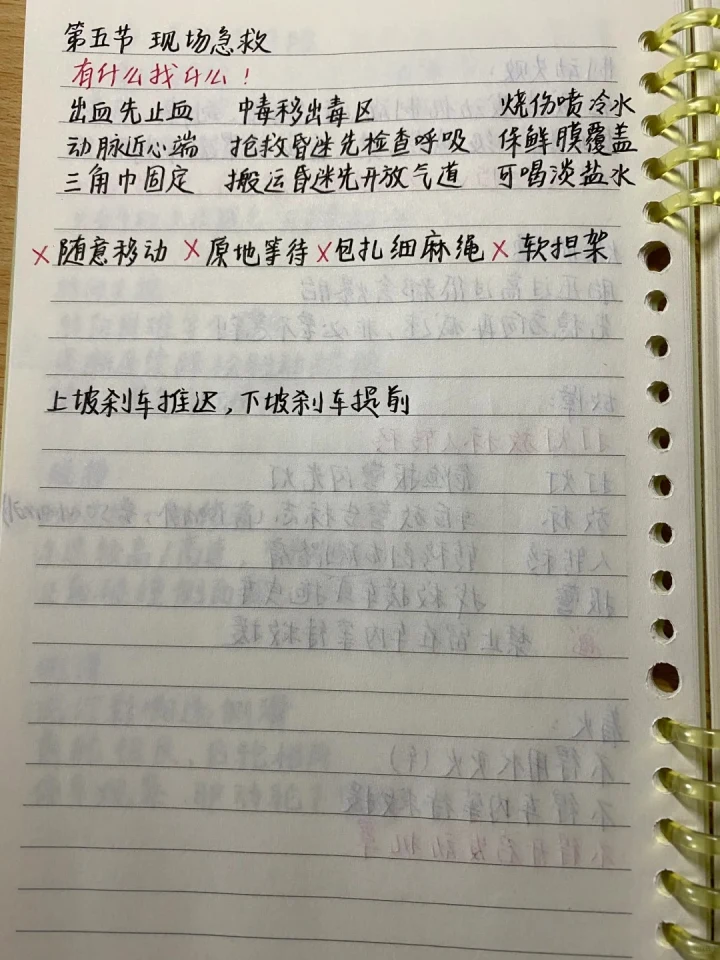 第五节 现场急救
有什么找什么！
出血先止血 中毒移出毒区 烧伤喷冷水
动脉近心端 抢救昏迷先检查呼吸 保鲜膜覆盖
三角巾固定 搬运昏迷先开放气道 可喝淡盐水
×随意移动 ×原地等待 ×包扎细麻绳 ×软担架
上坡刹车推迟，下坡刹车提前